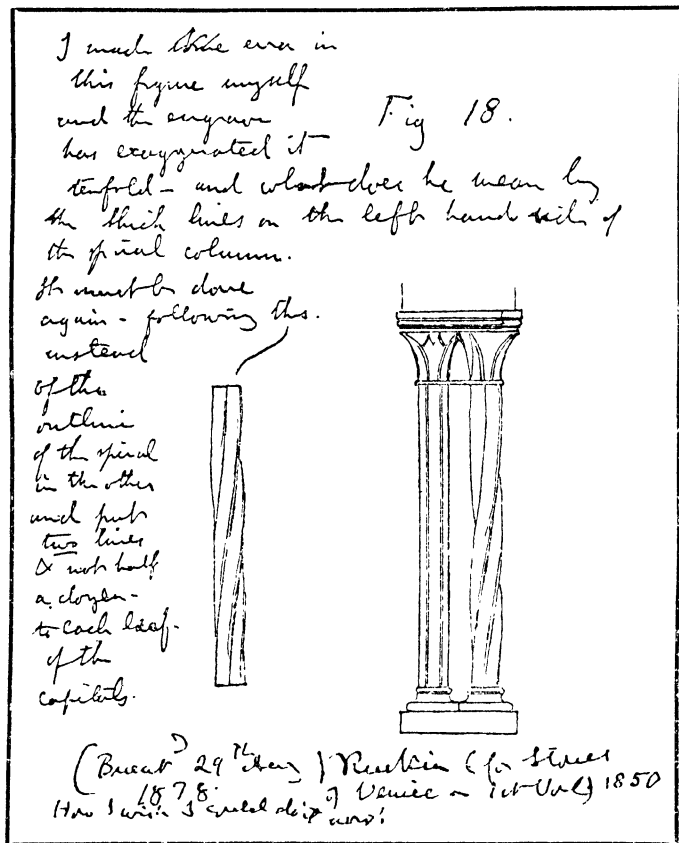 I made the error in
this figure myself
and the engraver
has exaggerated it
Fig 18.
tenfold – and what does he mean by
the thick lines on the left hand side of
the spiral column.
It must be done
again – following this.
instead
of the
outline
of the spiral
in the other
and put
two lines
& not half
a dozen –
to each leaf.
of the
capitals.
(Brant 29th 
1878.
) Ruskin (for Stones
of Venice 1st Vol) 1850
How I wish I could do it now!